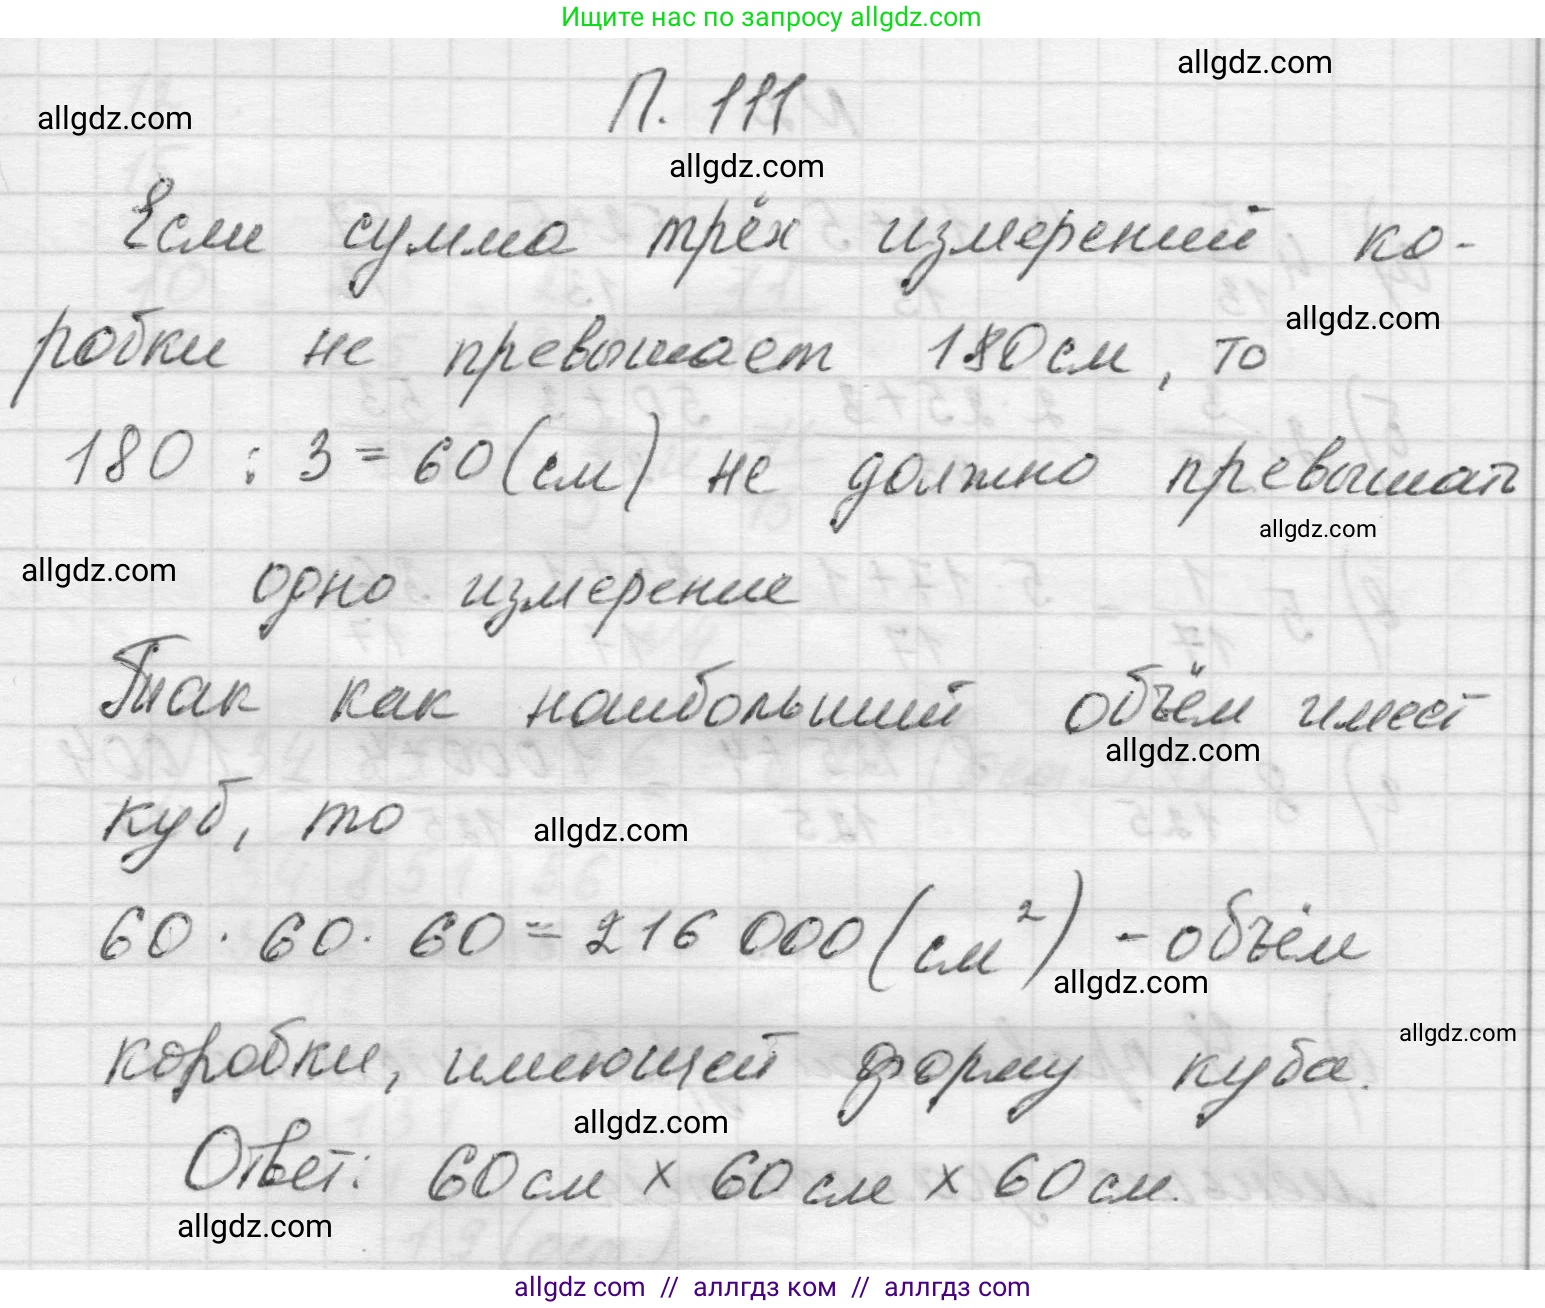 Ищите нас по запросу allgdz.com
allgdz.com
allgdz.com
П. 111
allgdz.com
Если сумма трёх измерений ко-
allgdz.com
робки не превышает 180 см, то
180 : 3 = 60 (см) не должно превышать
allgdz.com
allgdz.com
одно измерение
Так как наибольший объём имеет
allgdz.com
куб, то
allgdz.com
60 · 60 · 60 = 216 000 (см²) - объём
allgdz.com
allgdz.com
коробки, имеющей форму куба.
allgdz.com
Ответ: 60 см × 60 см × 60 см.
allgdz.com
allgdz com // аллгдз ком // аллгдз com